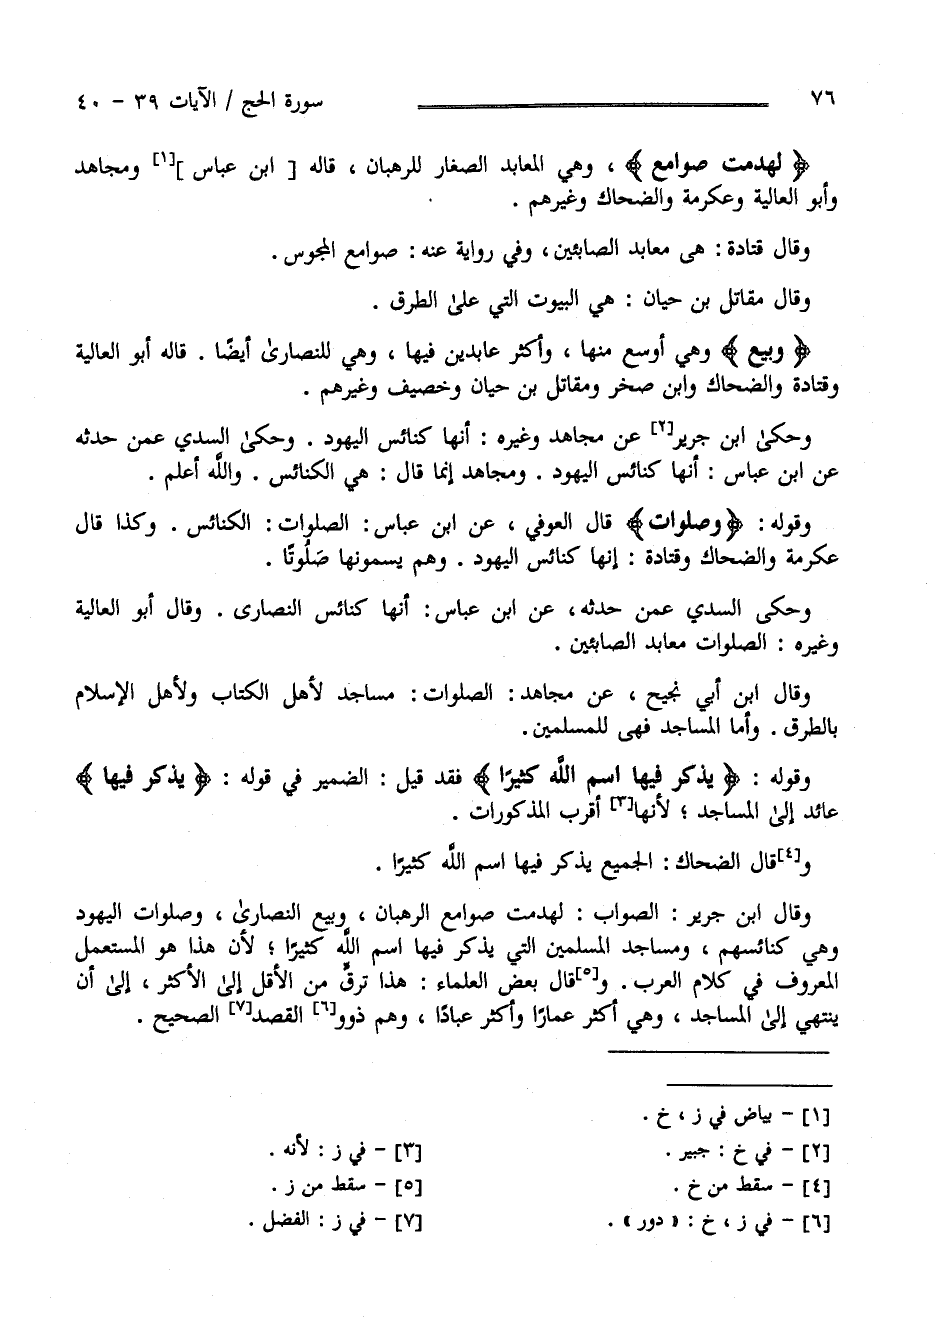 ٧٦ سورة الحج / الآيات ٣٩ - ٤٠
﴿ لهدمت صوامع ﴾ ، وهي المعابد الصغار للرهبان ، قاله [ ابن عباس ][١] ومجاهد
وأبو العالية وعكرمة والضحاك وغيرهم .
وقال قتادة : هى معابد الصابئين ، وفي رواية عنه : صوامع المجوس .
وقال مقاتل بن حيان : هي البيوت التي علىٰ الطرق .
﴿ وبيع ﴾ وهي أوسع منها ، وأكثر عابدين فيها ، وهي للنصارىٰ أيضًا . قاله أبو العالية
وقتادة والضحاك وابن صخر ومقاتل بن حيان وخصيف وغيرهم .
وحكىٰ ابن جرير[٢] عن مجاهد وغيره : أنها كنائس اليهود . وحكىٰ السدي عمن حدثه
عن ابن عباس : أنها كنائس اليهود . ومجاهد إنما قال : هي الكنائس . واللَّه أعلم .
وقوله : ﴿وصلوات﴾ قال العوفي ، عن ابن عباس : الصلوات : الكنائس . وكذا قال
عكرمة والضحاك وقتادة : إنها كنائس اليهود . وهم يسمونها صَلُوتًا .
وحكى السدي عمن حدثه ، عن ابن عباس : أنها كنائس النصارى . وقال أبو العالية
وغيره : الصلوات معابد الصابئين .
وقال ابن أبي نجيح ، عن مجاهد : الصلوات : مساجد لأهل الكتاب ولأهل الإسلام
بالطرق . وأما المساجد فهى للمسلمين .
وقوله : ﴿ يذكر فيها اسم اللَّه كثيرًا ﴾ فقد قيل : الضمير في قوله : ﴿ يذكر فيها ﴾
عائد إلىٰ المساجد ؛ لأنها[٣] أقرب المذكورات .
و[٤]قال الضحاك : الجميع يذكر فيها اسم اللَّه كثيرًا .
وقال ابن جرير : الصواب : لهدمت صوامع الرهبان ، وبيع النصارىٰ ، وصلوات اليهود
وهي كنائسهم ، ومساجد المسلمين التي يذكر فيها اسم اللَّه كثيرًا ؛ لأن هذا هو المستعمل
المعروف في كلام العرب . و[٥]قال بعض العلماء : هذا ترقٍّ من الأقل إلىٰ الأكثر ، إلىٰ أن
ينتهي إلىٰ المساجد ، وهي أكثر عمارًا وأكثر عبادًا ، وهم ذوو[٦] القصد[٧] الصحيح .
[١] - بياض في ز ، خ .
[٢] - في خ : جبير . [٣] - في ز : لأنه .
[٤] - سقط من خ . [٥] - سقط من ز .
[٦] - في ز ، خ : « دور » . [٧] - في ز : الفضل .